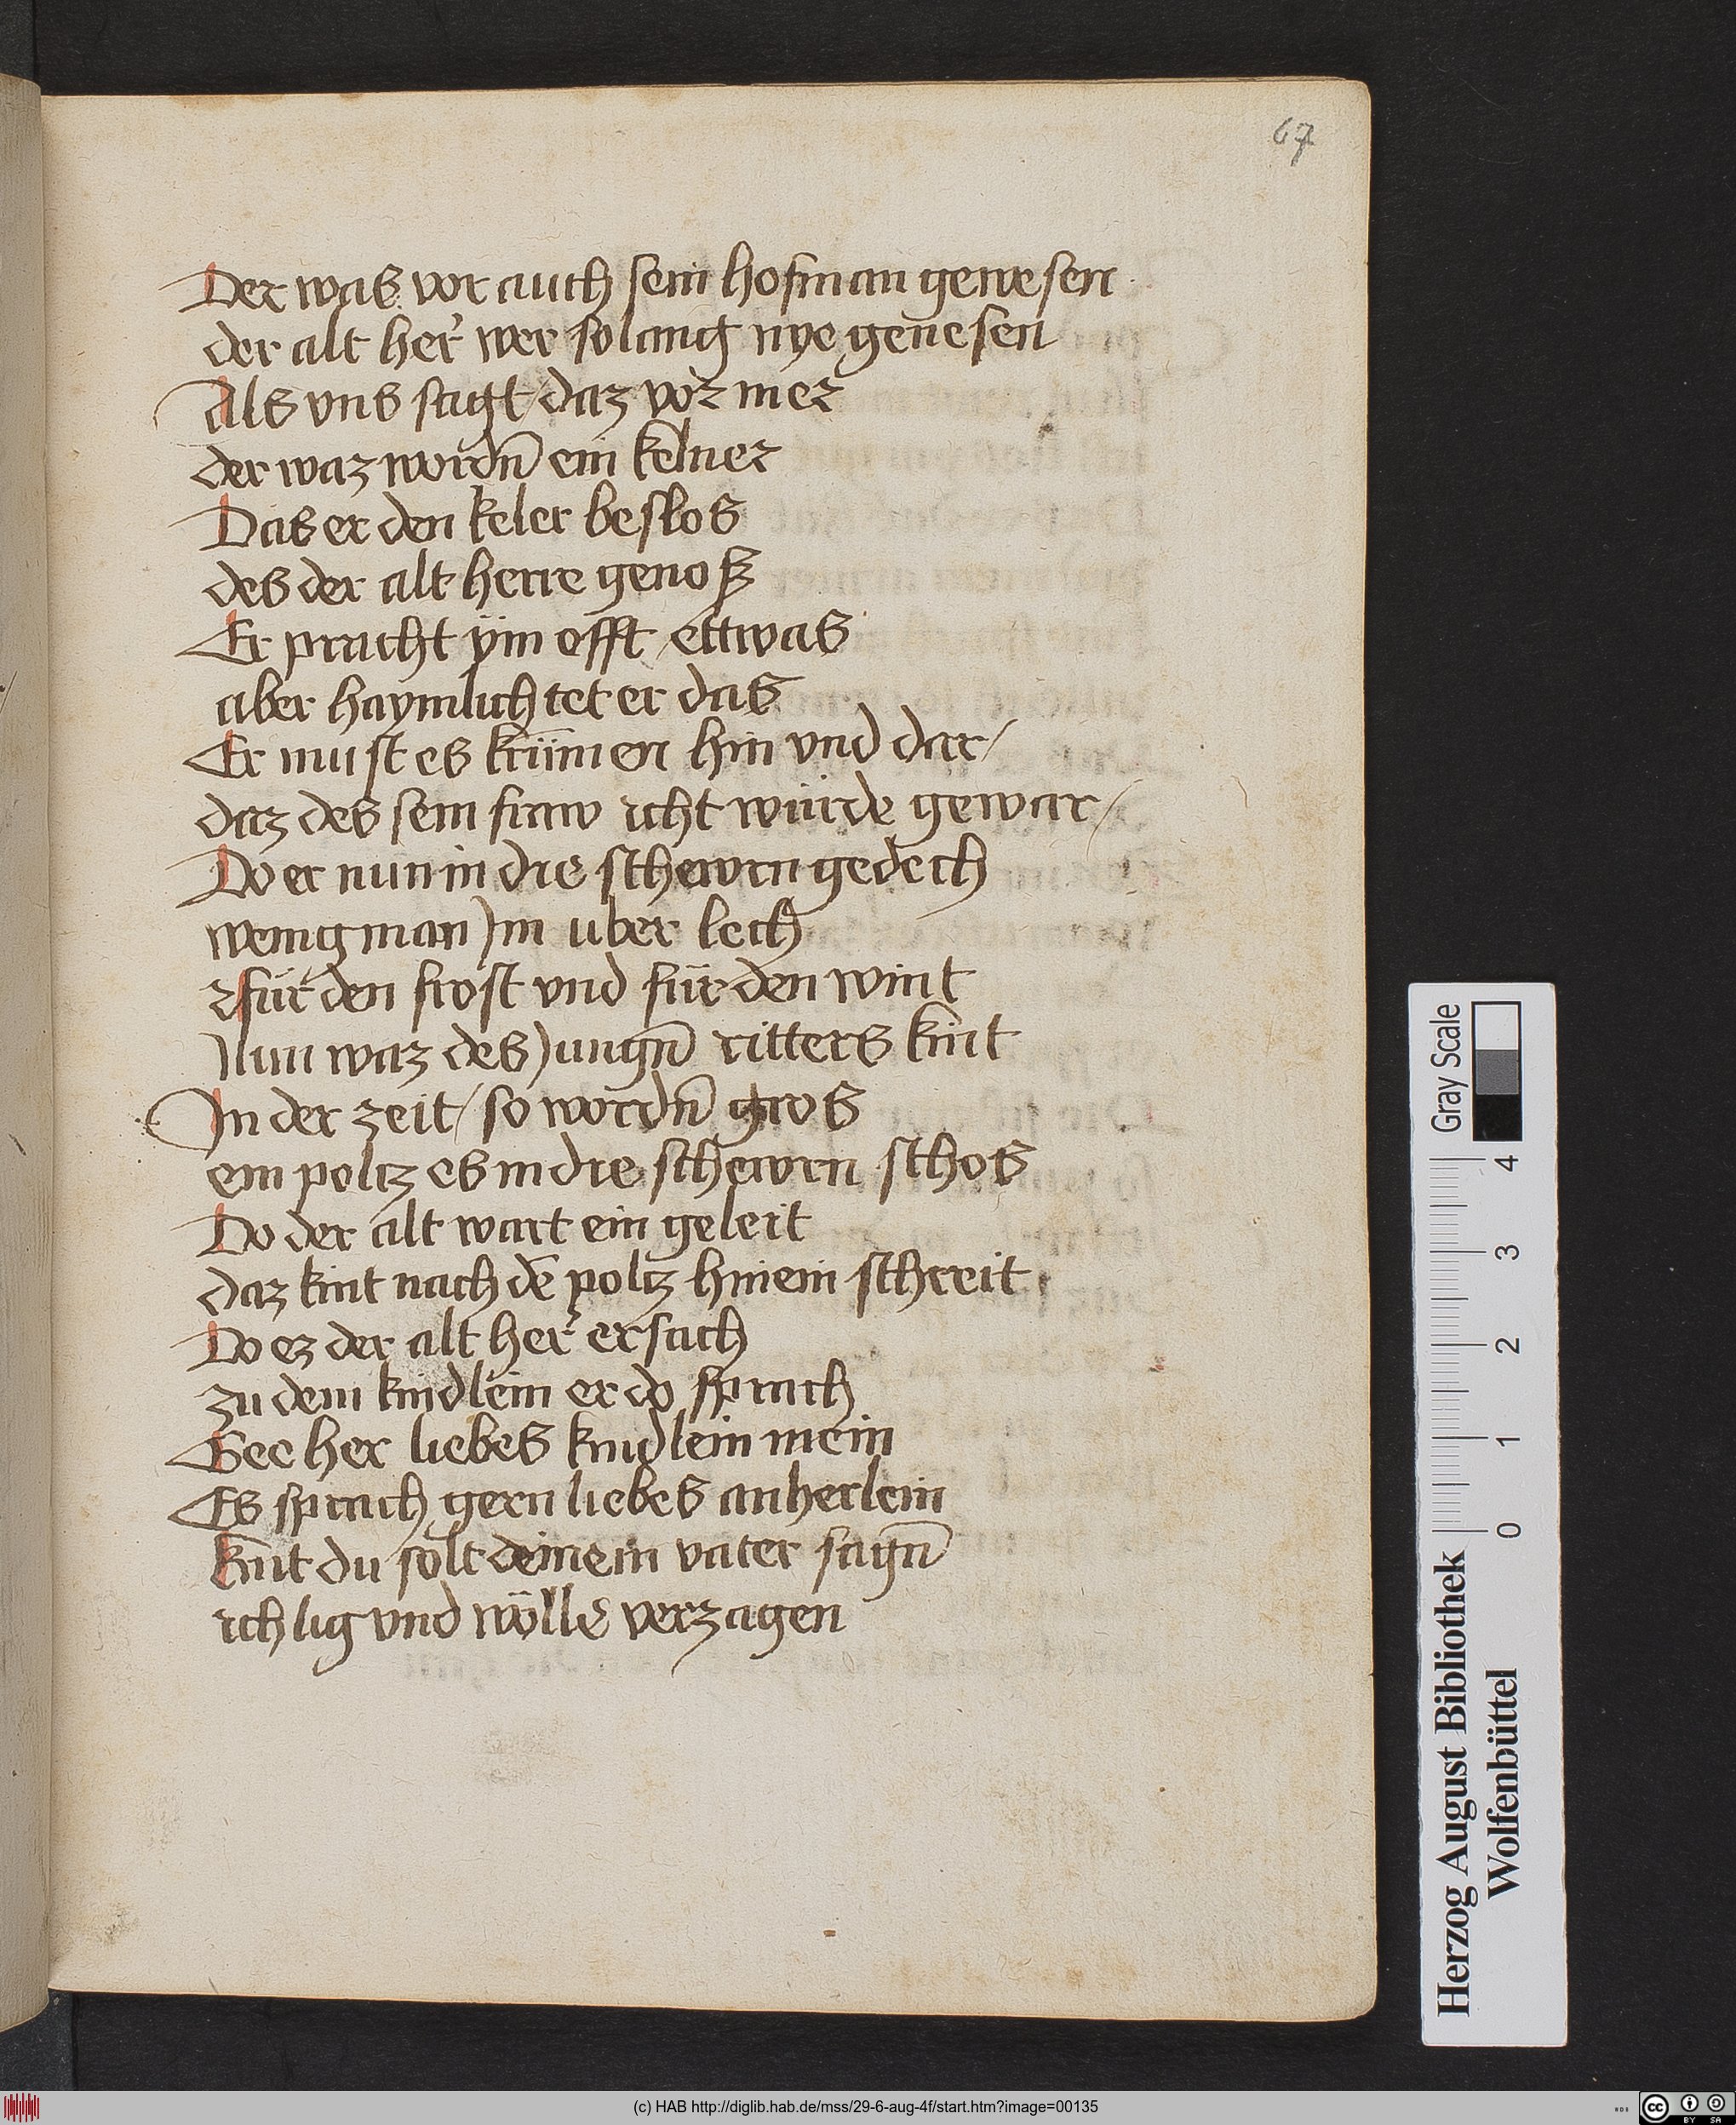 67
Der was vor auch sein hofman gewesen
der alt her͛ wer so lang nye genesen
Als vns sagt / daz vor mer
der waz wordn̄ ein kelner
Das er den keler beslos
des der alt herre genosz
Er pracht ym offt ettwas
aber haymlich tet er das
Er must es krümen hin vnd dar /
daz des sein fraw icht würde gewar /
Do er nun in die schewrn gedech
wenig man Jm uber lech
für den frost vnd für den wint
Nun waz des Jungn̄ ritters kint
In der zeit / so wordn̄ gros
ein poltz es in die schewrn schos
Do der alt wart ein geleit
daz kint nach dē poltz hinein schreit
Do ez der alt her͛ ersach
zu dem kindlein er do sprach
Gee her liebes kindlein mein
Es sprach gern liebes anherlein
kint du solt deinem vater sagn̄
ich lig vnd wölle verzagen
Gray Scale
4
3
2
1
0
Herzog August Bibliothek
Wolfenbüttel
(c) HAB http://diglib.hab.de/mss/29-6-aug-4f/start.htm?image=00135
cc BY SA